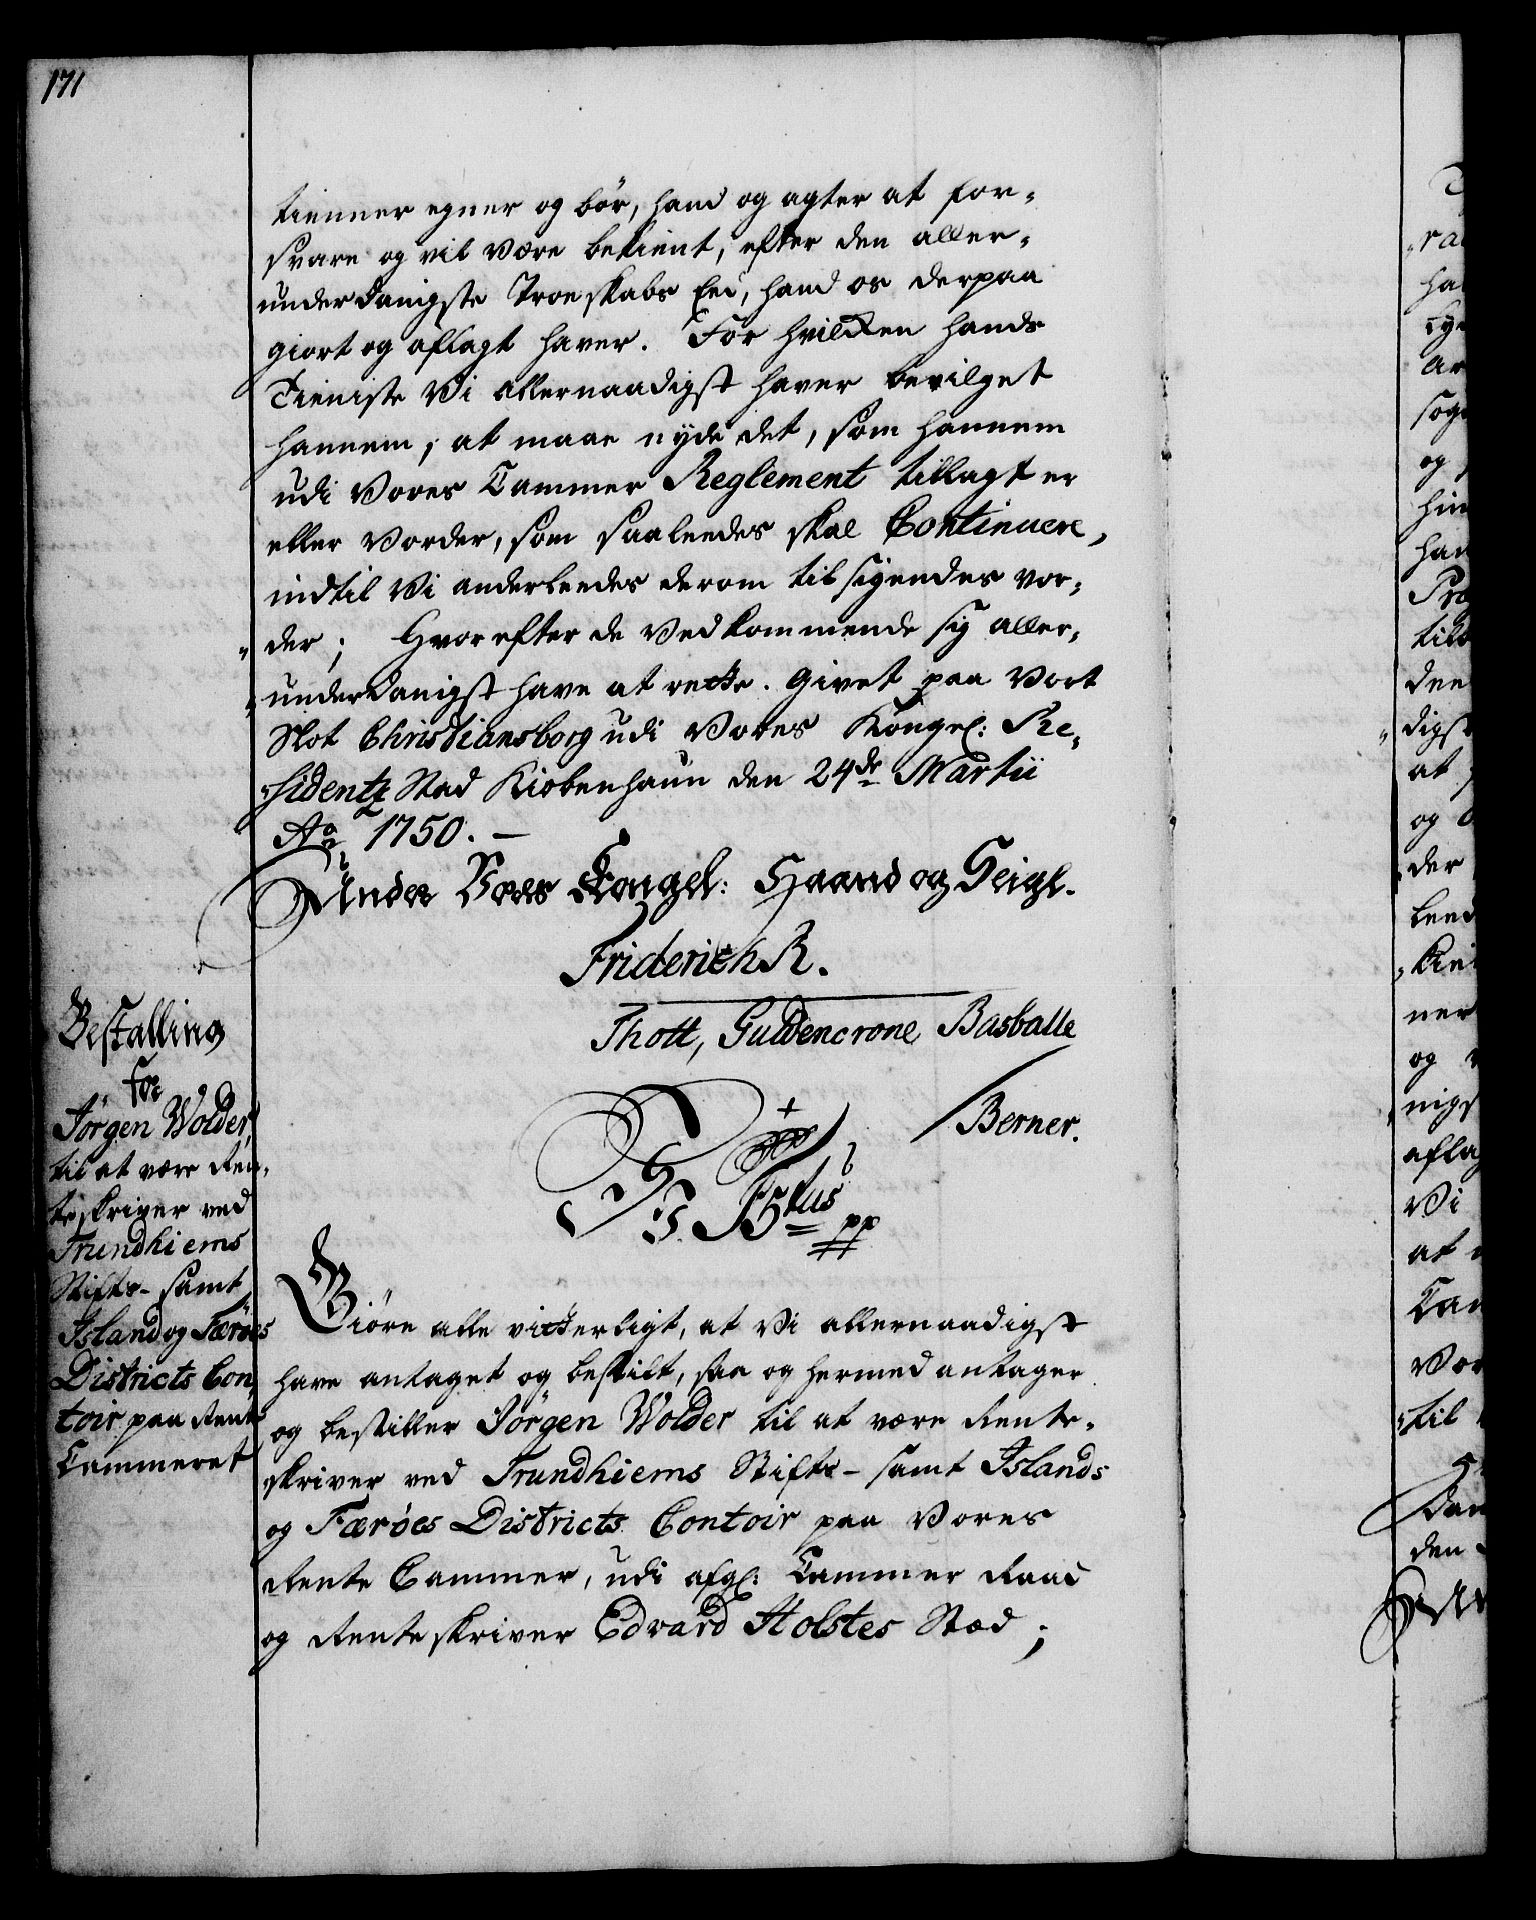 171
tienner egner og bör, hand og agter at for-
svare og vil være bekient, efter den aller-
underdanigste Troeskabs Eed, hand os derpaa
giort og aflagt haver. For hvilcken hands
Tieniste Vi allernaadigst haver bevilget
hannem, at maae nyde det, som hannem
udi Vores Cammer Reglement tillagt er
eller Vorder, som saaleedes skal Continuere,
indtil Vi anderleedes derom tilsigendes vor-
der; Hvorefter de Vedkommende sig aller-
underdanigst have at rette. Givet paa Vort
Slot Christiansborg udi Vores Kongel: Re-
sidentz Stad Kiøbenhaun den 24de Martii
Ao 1750.
Under Vores Kongel: Haand og Seigl.
Friderich R.
Thott, Guldencrone, Basballe
Berner.
Bestalling
for
Jørgen Wolder,
til at være Ren-
teskriver ved
Trundhiems
Stifts- samt
Island og Færöes
Districts Con-
toir paa Rente
Cammeret
F 5tus pp
Giöre alle vitterligt, at Vi allernaadigst
have antaget og bestilt, saa og hermed antager
og bestiller Jörgen Wolder til at være Rente-
skriver ved Trundhiems Stifts- samt Islands
og Færöes Districts Contoir paa Vores
Rente Cammer, udi afg: Cammer Raad
og Renteskriver Edvard Holstes Stæd;